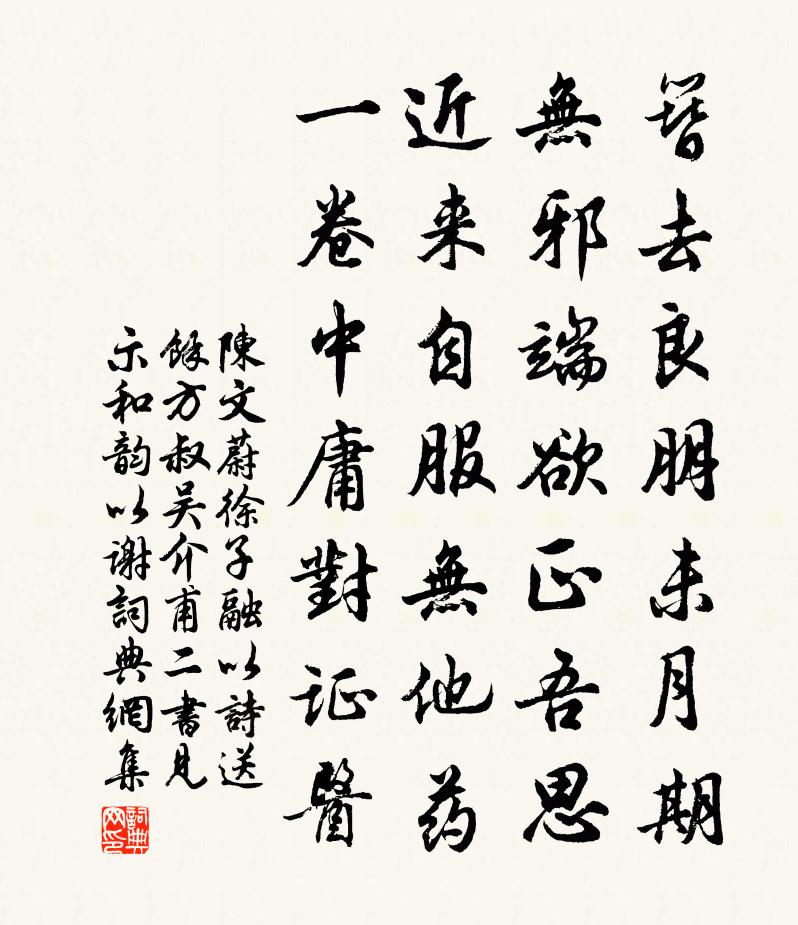 簪去良朋未月期
無邪端欲正吾思
近来自服無他药
一卷中庸對证醫
陳文蔚徐子融以詩送
馀方叔吴介甫二書見
示和韵以谢詞典網集
詞典
网印